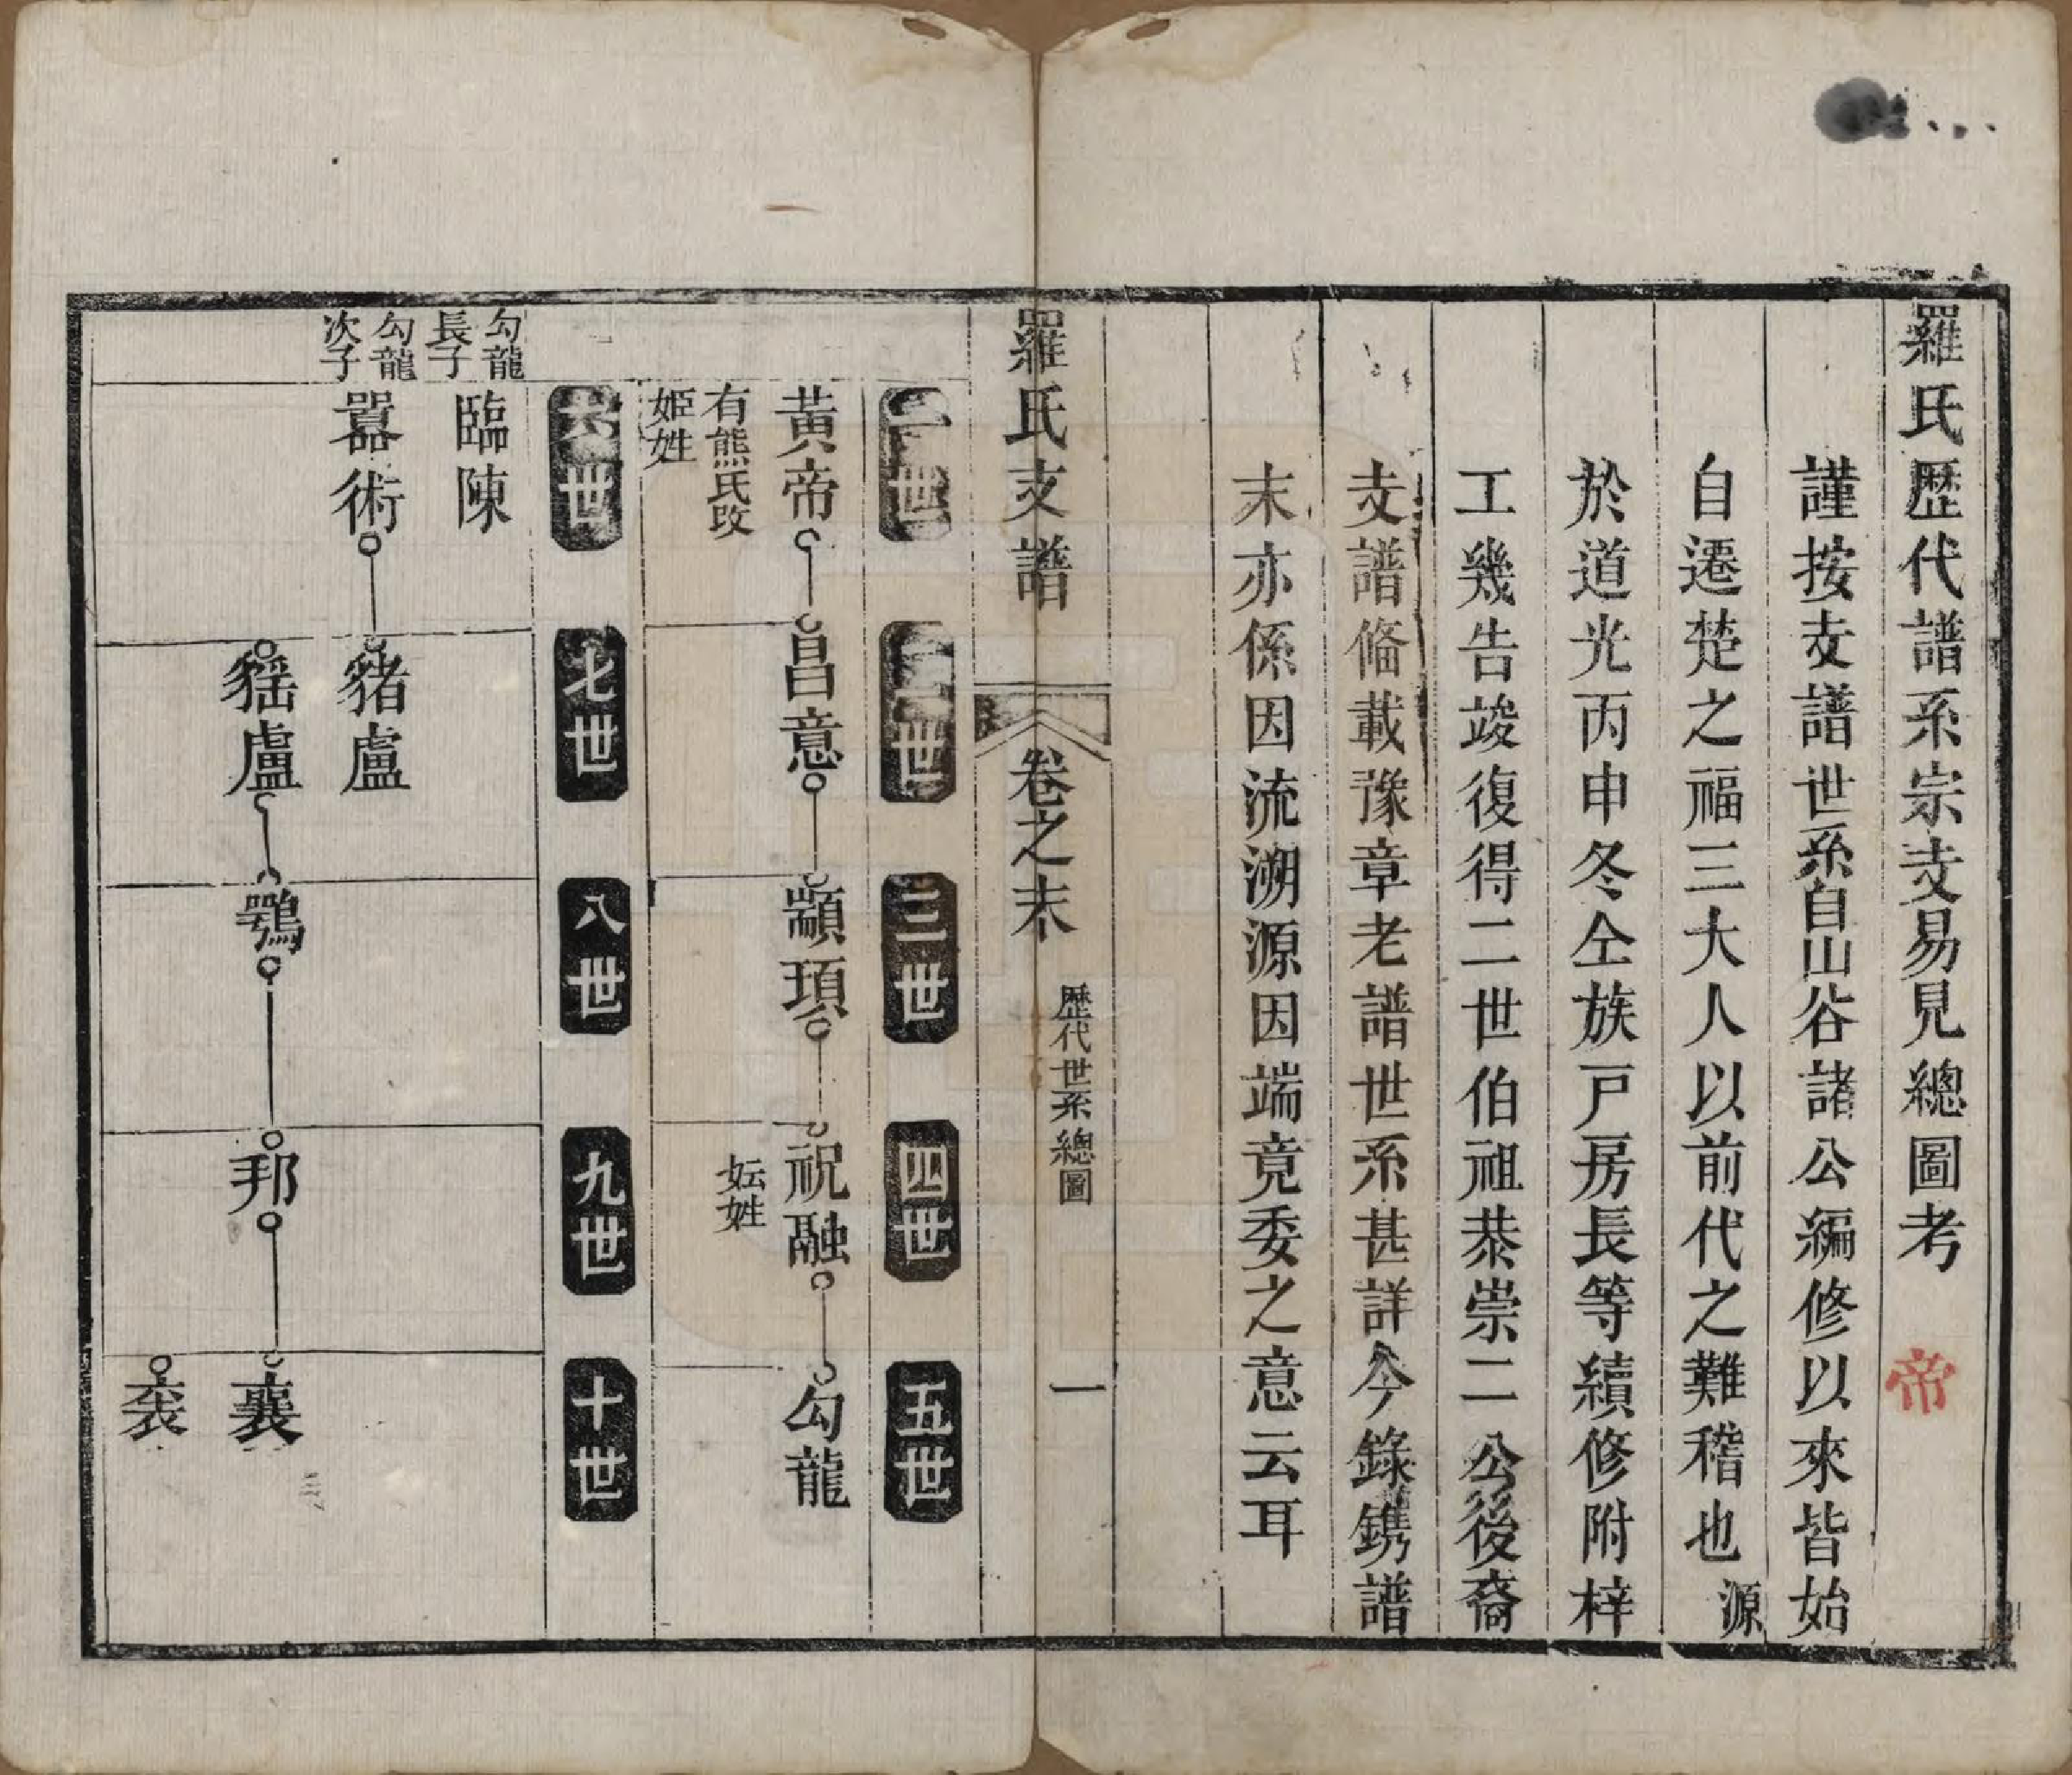 羅氏歷代譜系宗支易見總圖考
帝
謹按支譜世系自山谷諸公編修以來皆始
自遷楚之福三大人以前代之難稽也源
於道光丙申冬仝族戸房長等續修附梓
工幾告竣復得二世伯祖恭崇二公後裔
支譜偹載豫章老譜世系甚詳今錄鐫譜
末亦係因流溯源因端竟委之意云耳
羅氏支譜
卷之末
歷代世系總圖
一
一世
二世
三世
四世
五世
黃帝
昌意
顓頊
祝融
勾龍
有熊氏改
姬姓
妘姓
六世
七世
八世
九世
十世
勾龍
長子
臨陳
勾龍
次子
嚣術
豬盧
䍃盧
鶚
邦
襄
裘